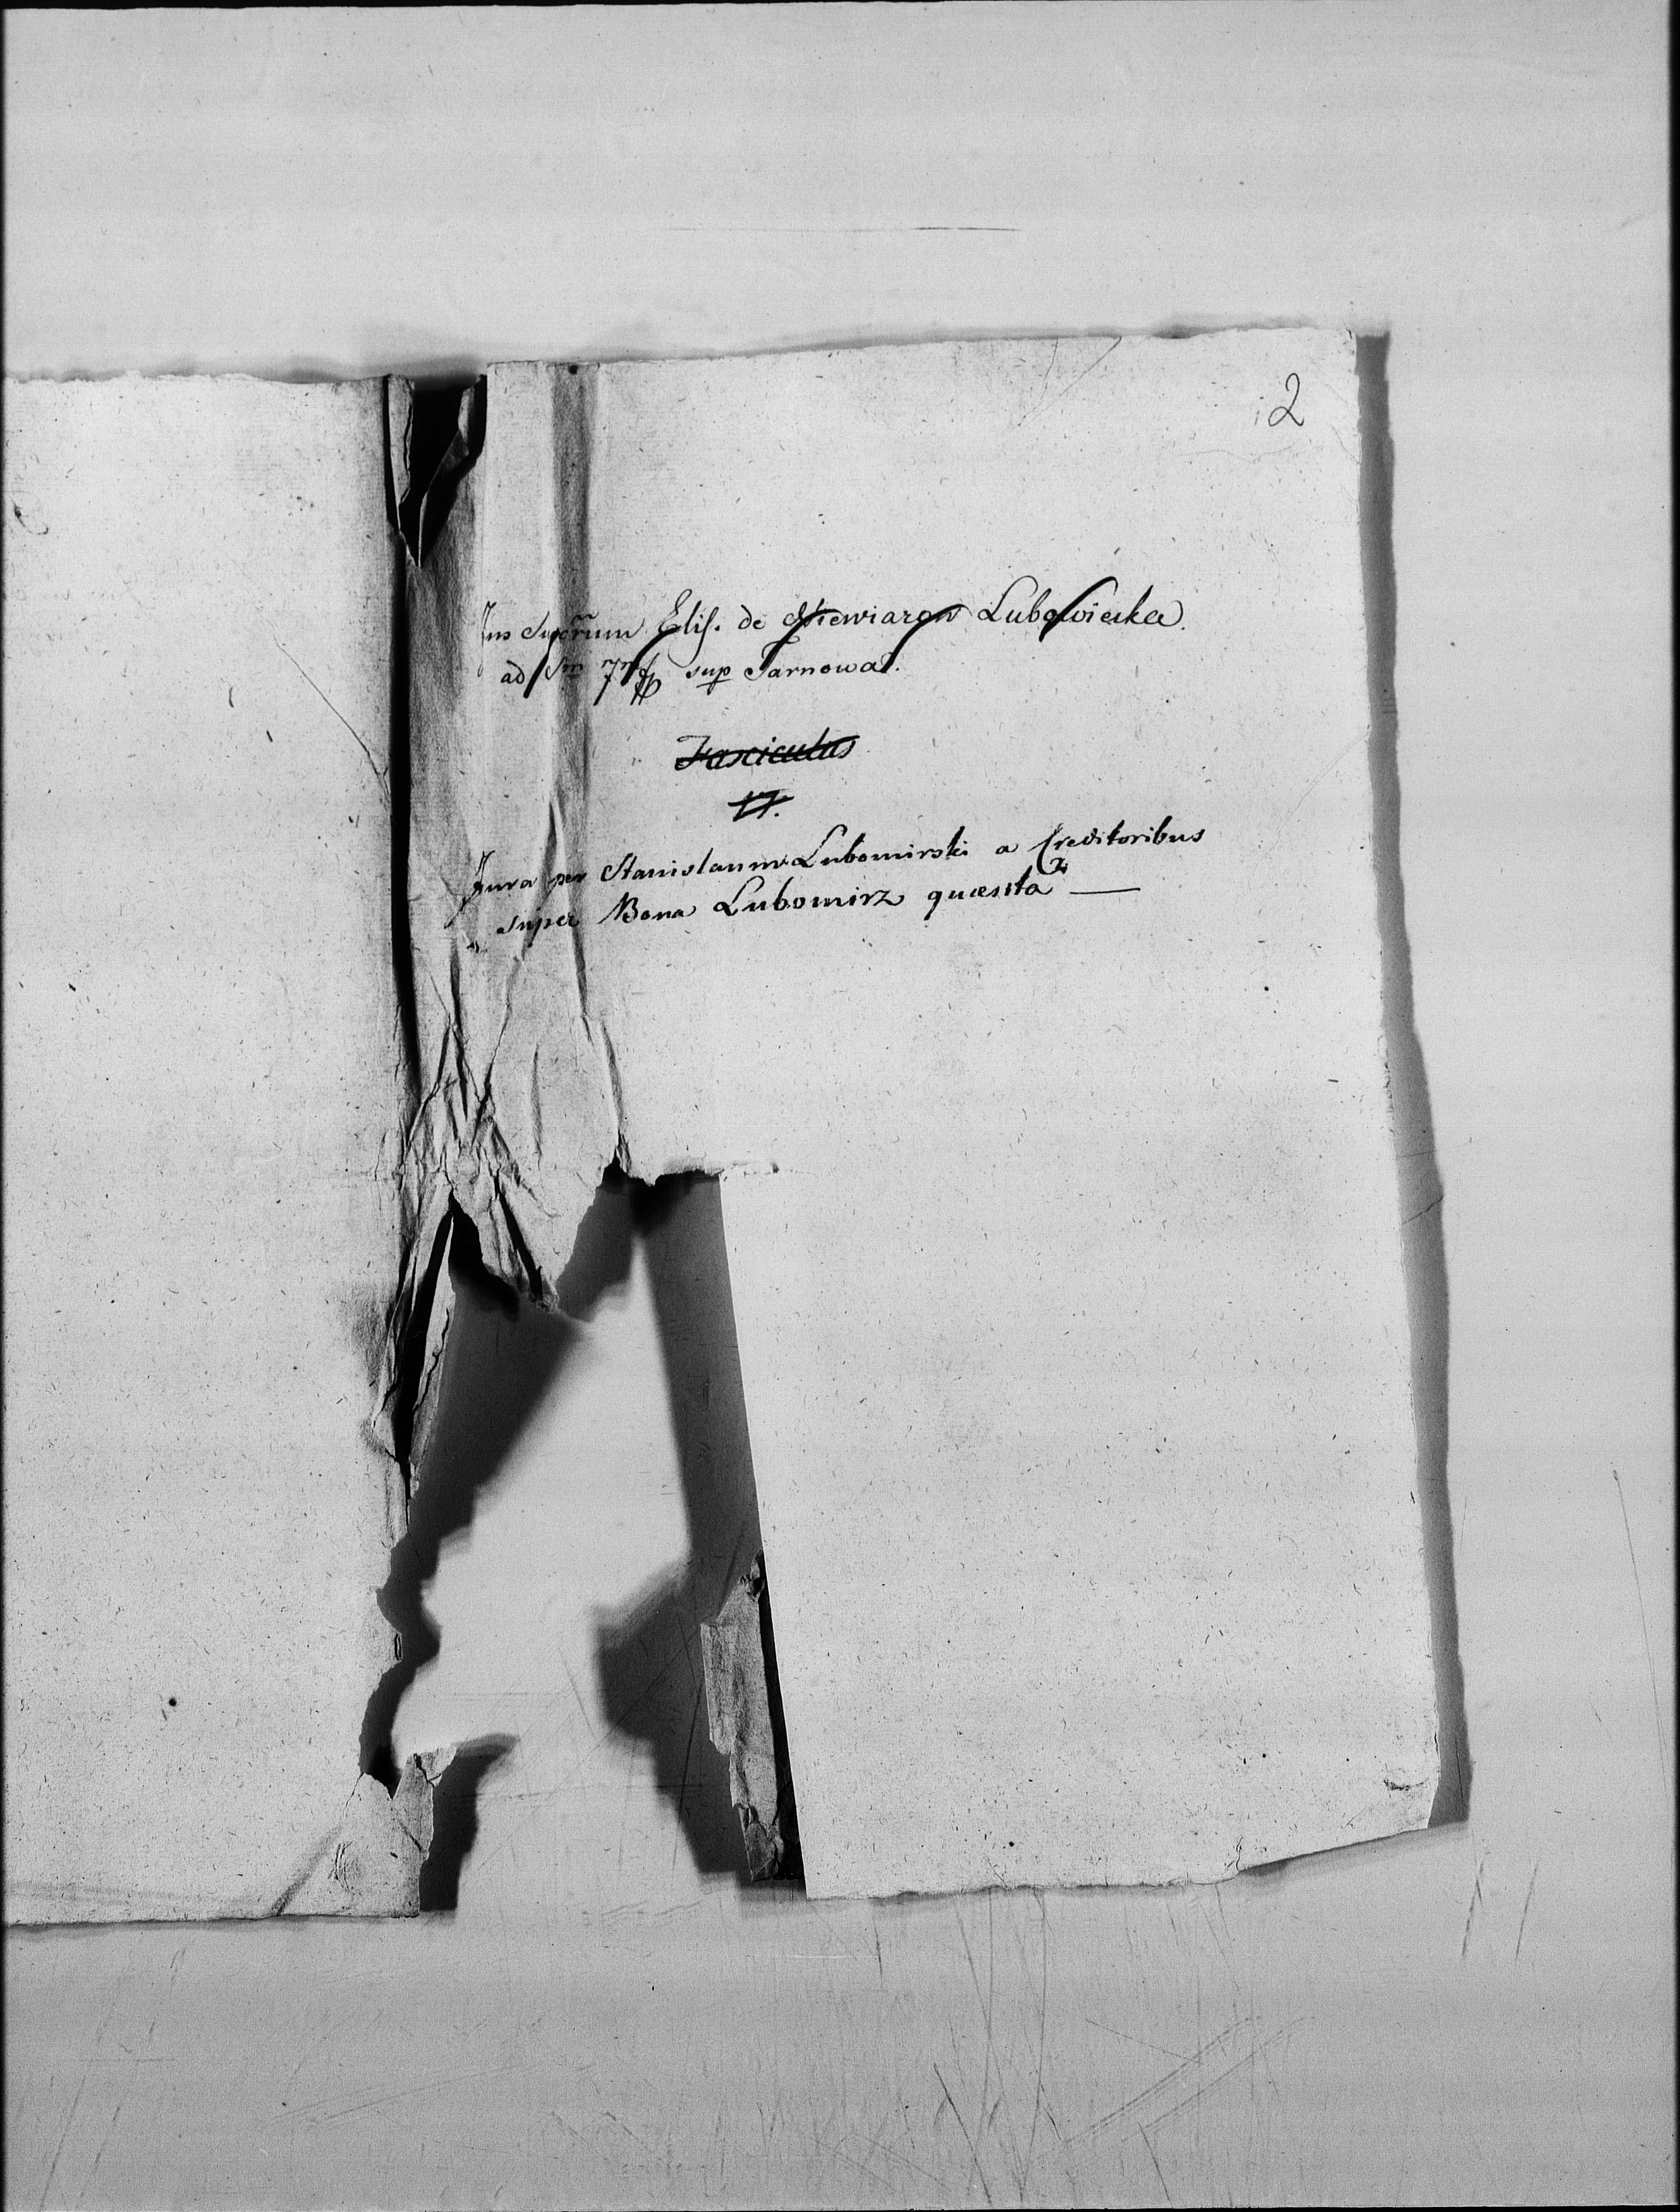 2
Jus Superum Elis. de Niewiarow Lubowiecka
ad Sm 7m sup Tarnowa.
Fasciculus
17.
Jura per Stanislaum Lubomirski a Creditoribus
super Bona Lubomirz quæsita —